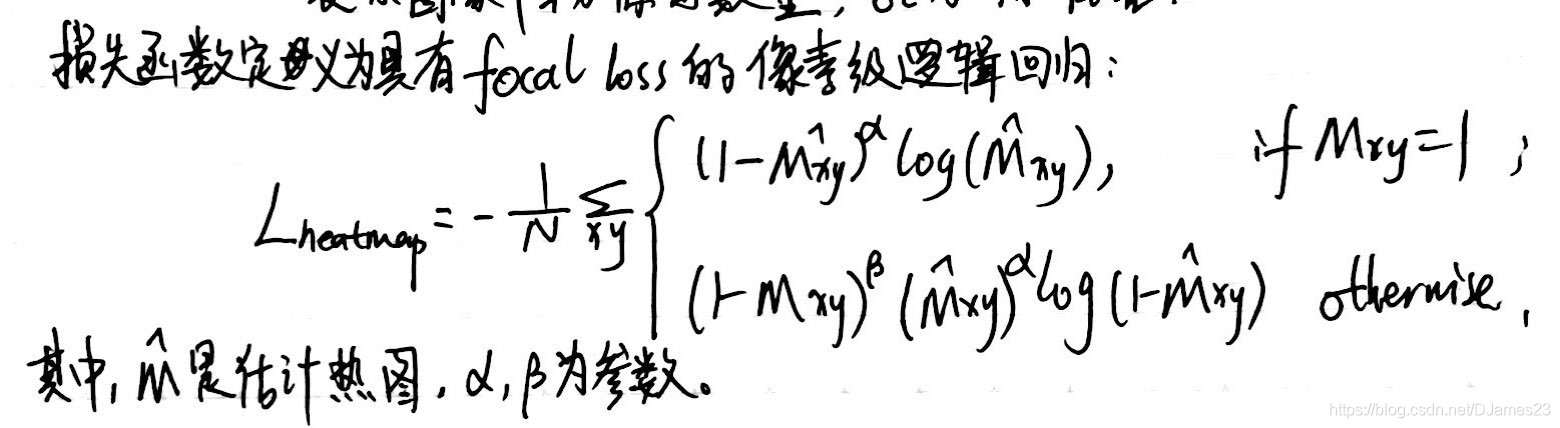 损失函数定义为具有focal loss的像素级逻辑回归:
L_heatmap = -1/N Σ_xy { (1-M̂xy)^α log(M̂xy), if Mxy=1;
(1-Mxy)^β (M̂xy)^α log(1-M̂xy) otherwise,
其中, M̂是估计热图, α, β为参数。
https://blog.csdn.net/DJames23